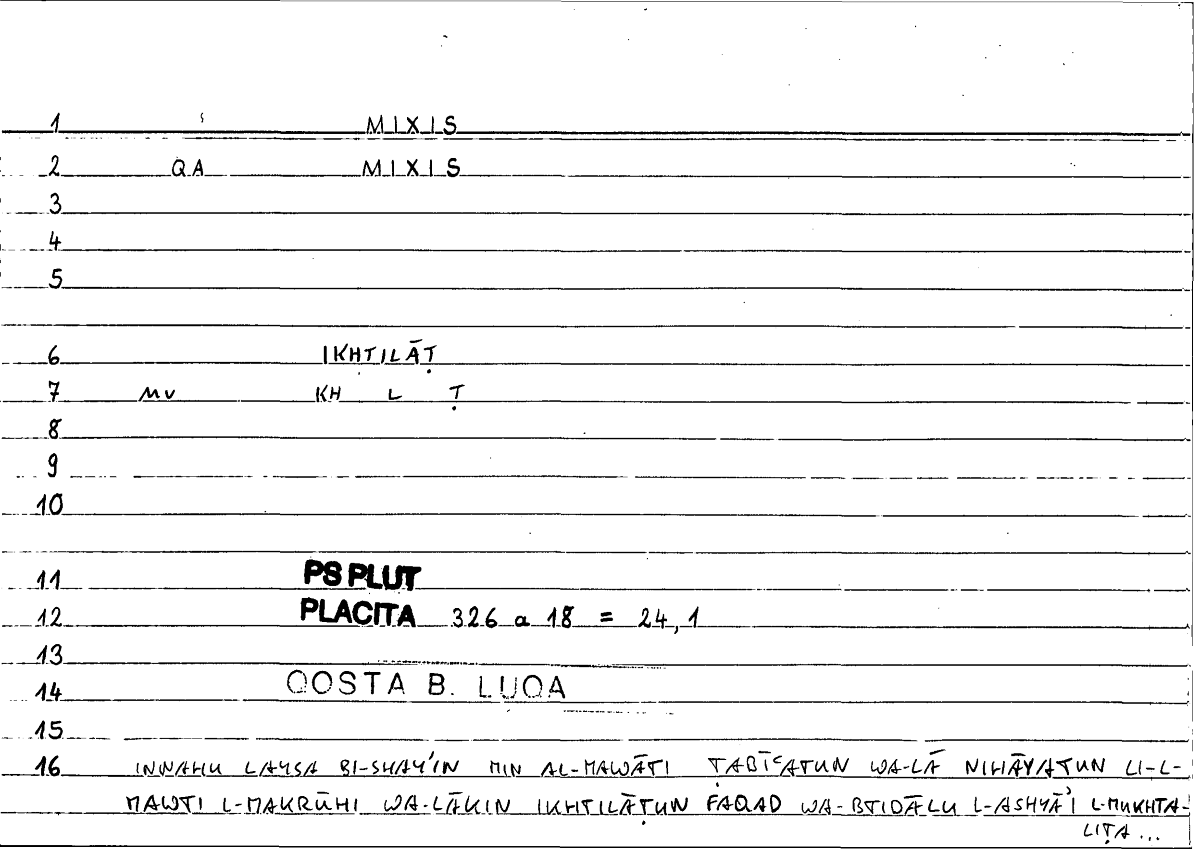 1 MIXIS
2 QA MIXIS
3
4
5
6 IKHTILĀṬ
7 MV KH L Ṭ
8
9
10
11 PS PLUT
12 PLACITA 326 a 18 = 24,1
13
14 QOSTA B. LUQA
15
16 INNAHU LAYSA BI-SHAY'IN MIN AL-MAWĀTI TABĪʿATUN WA-LĀ NIHĀYATUN LI-L-
MAWTI L-MAKRŪHI WA-LĀKIN IKHTILĀṬUN FAQAD WA-BTIDĀLU L-ASHYĀ'I L-MUKHTA-
LIṬA ...